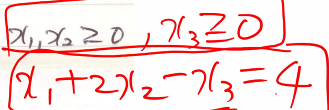 x₁, x₂ ≥ 0, x₃ ≥ 0
x₁ + 2x₂ - x₃ = 4